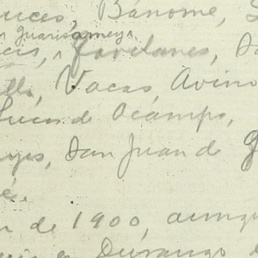 uces, Bánome, S
Guarisamey,
cis, Gavilanes, Da
lle, Vacas, Avino
Lucas de Ocampo,
yes, San Juan de G
e.
r de 1900, aunqu
Durango d